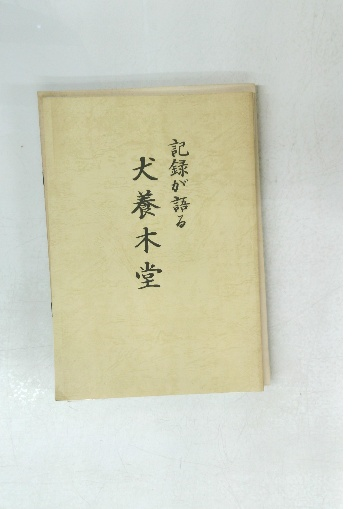 記録が語る
犬養木堂